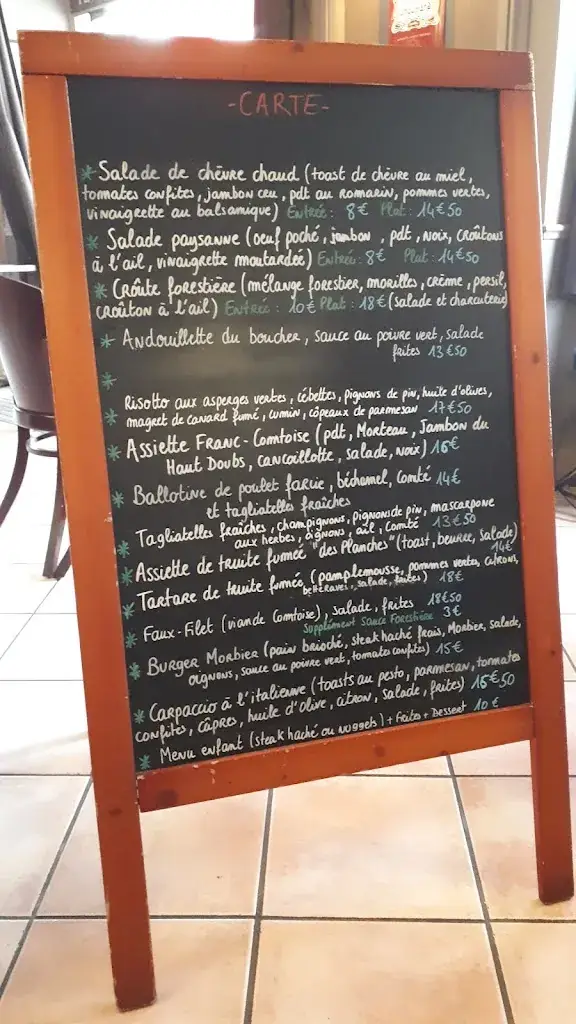 -CARTE-
* Salade de chèvre chaud (toast de chèvre au miel,
tomates confites, jambon cru, pdt au romarin, pommes vertes,
vinaigrette au balsamique) Entrée : 8€ Plat : 14€50
* Salade paysanne (oeuf poché, jambon , pdt, noix, croûtons
à l'ail, vinaigrette moutardée) Entrée : 8€ Plat : 14€50
* Croûte forestière (mélange forestier, morilles, crème, persil,
croûton à l'ail) Entrée : 10€ Plat : 18€ (salade et charcuterie)
* Andouillette du boucher, sauce au poivre vert, salade
frites 13€50
*
* Risotto aux asperges vertes, cébettes, pignons de pin, huile d'olives,
magret de canard fumé, cumin, côpeaux de parmesan 17€50
* Assiette Franc-Comtoise (pdt, Morteau, Jambon du
Haut Doubs, cancoillotte, salade, noix) 16€
* Ballotine de poulet farcie, béchamel, Comté 14€
et tagliatelles fraîches
Tagliatelles fraîches, champignons, pignons de pin, mascarpone
aux herbes, oignons, ail, Comté 13€50
* Assiette de truite fumée "des Planches" (toast, beurre, salade)
14€
* Tartare de truite fumée (pamplemousse, pommes vertes, citrons,
betteraves, salade, frites) 18€
* Faux-Filet (viande Comtoise), salade, frites 18€50
Supplément Sauce Forestière 3€
* Burger Morbier (pain brioché, steak haché frais, Morbier, salade,
oignons, sauce au poivre vert, tomates confites) 15€
* Carpaccio à l'italienne (toasts au pesto, parmesan, tomates
confites, câpres, huile d'olive, citron, salade, frites) 16€50
* Menu enfant (steak haché ou nuggets) + frites + Dessert 10€